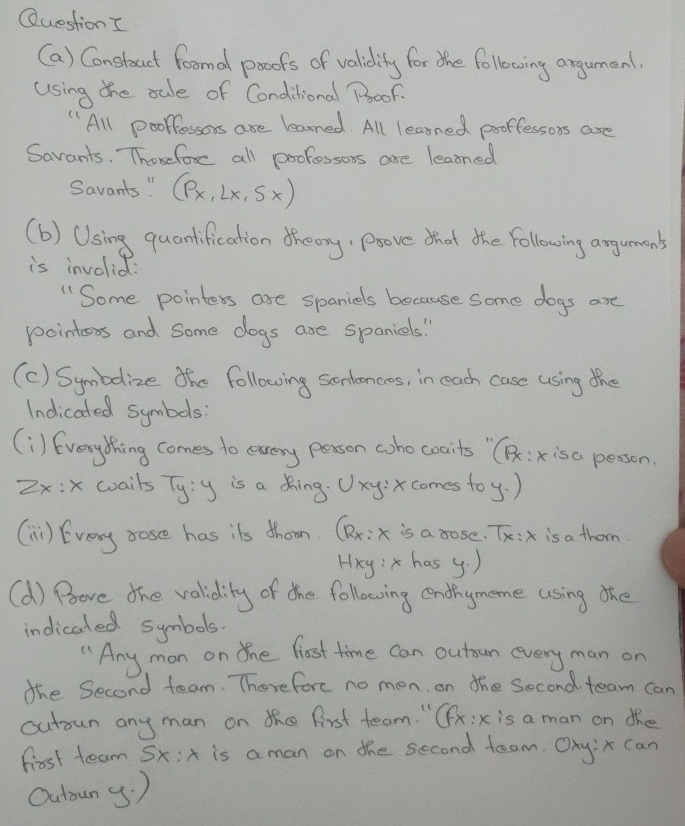 Question I
(a) Construct formal proofs of validity for the following argument.
Using the rule of Conditional Proof.
"All proffessors are learned. All learned proffessors are
Savants. Therefore all professors are learned
Savants." (Px, Lx, Sx)
(b) Using quantification theory, prove that the following arguments
is invalid:
"Some pointers are spaniels because some dogs are
pointers and some dogs are spaniels."
(c) Symbolize the following sentences, in each case using the
Indicated symbols:
(i) Everything comes to every person who waits "(Px: x is a person.
Zx: x waits Ty: y is a thing. Uxy: x comes to y.)
(iii) Every rose has its thorn. (Rx: x is a rose. Tx: x is a thorn.
Hxy: x has y.)
(d) Prove the validity of the following enthymeme using the
indicated symbols.
"Any man on the first time can outrun every man on
the Second team. Therefore no men on the Second team can
outrun any man on the first team." (Fx: x is a man on the
first team Sx: x is a man on the second team. Oxy: x can
Outrun y.)